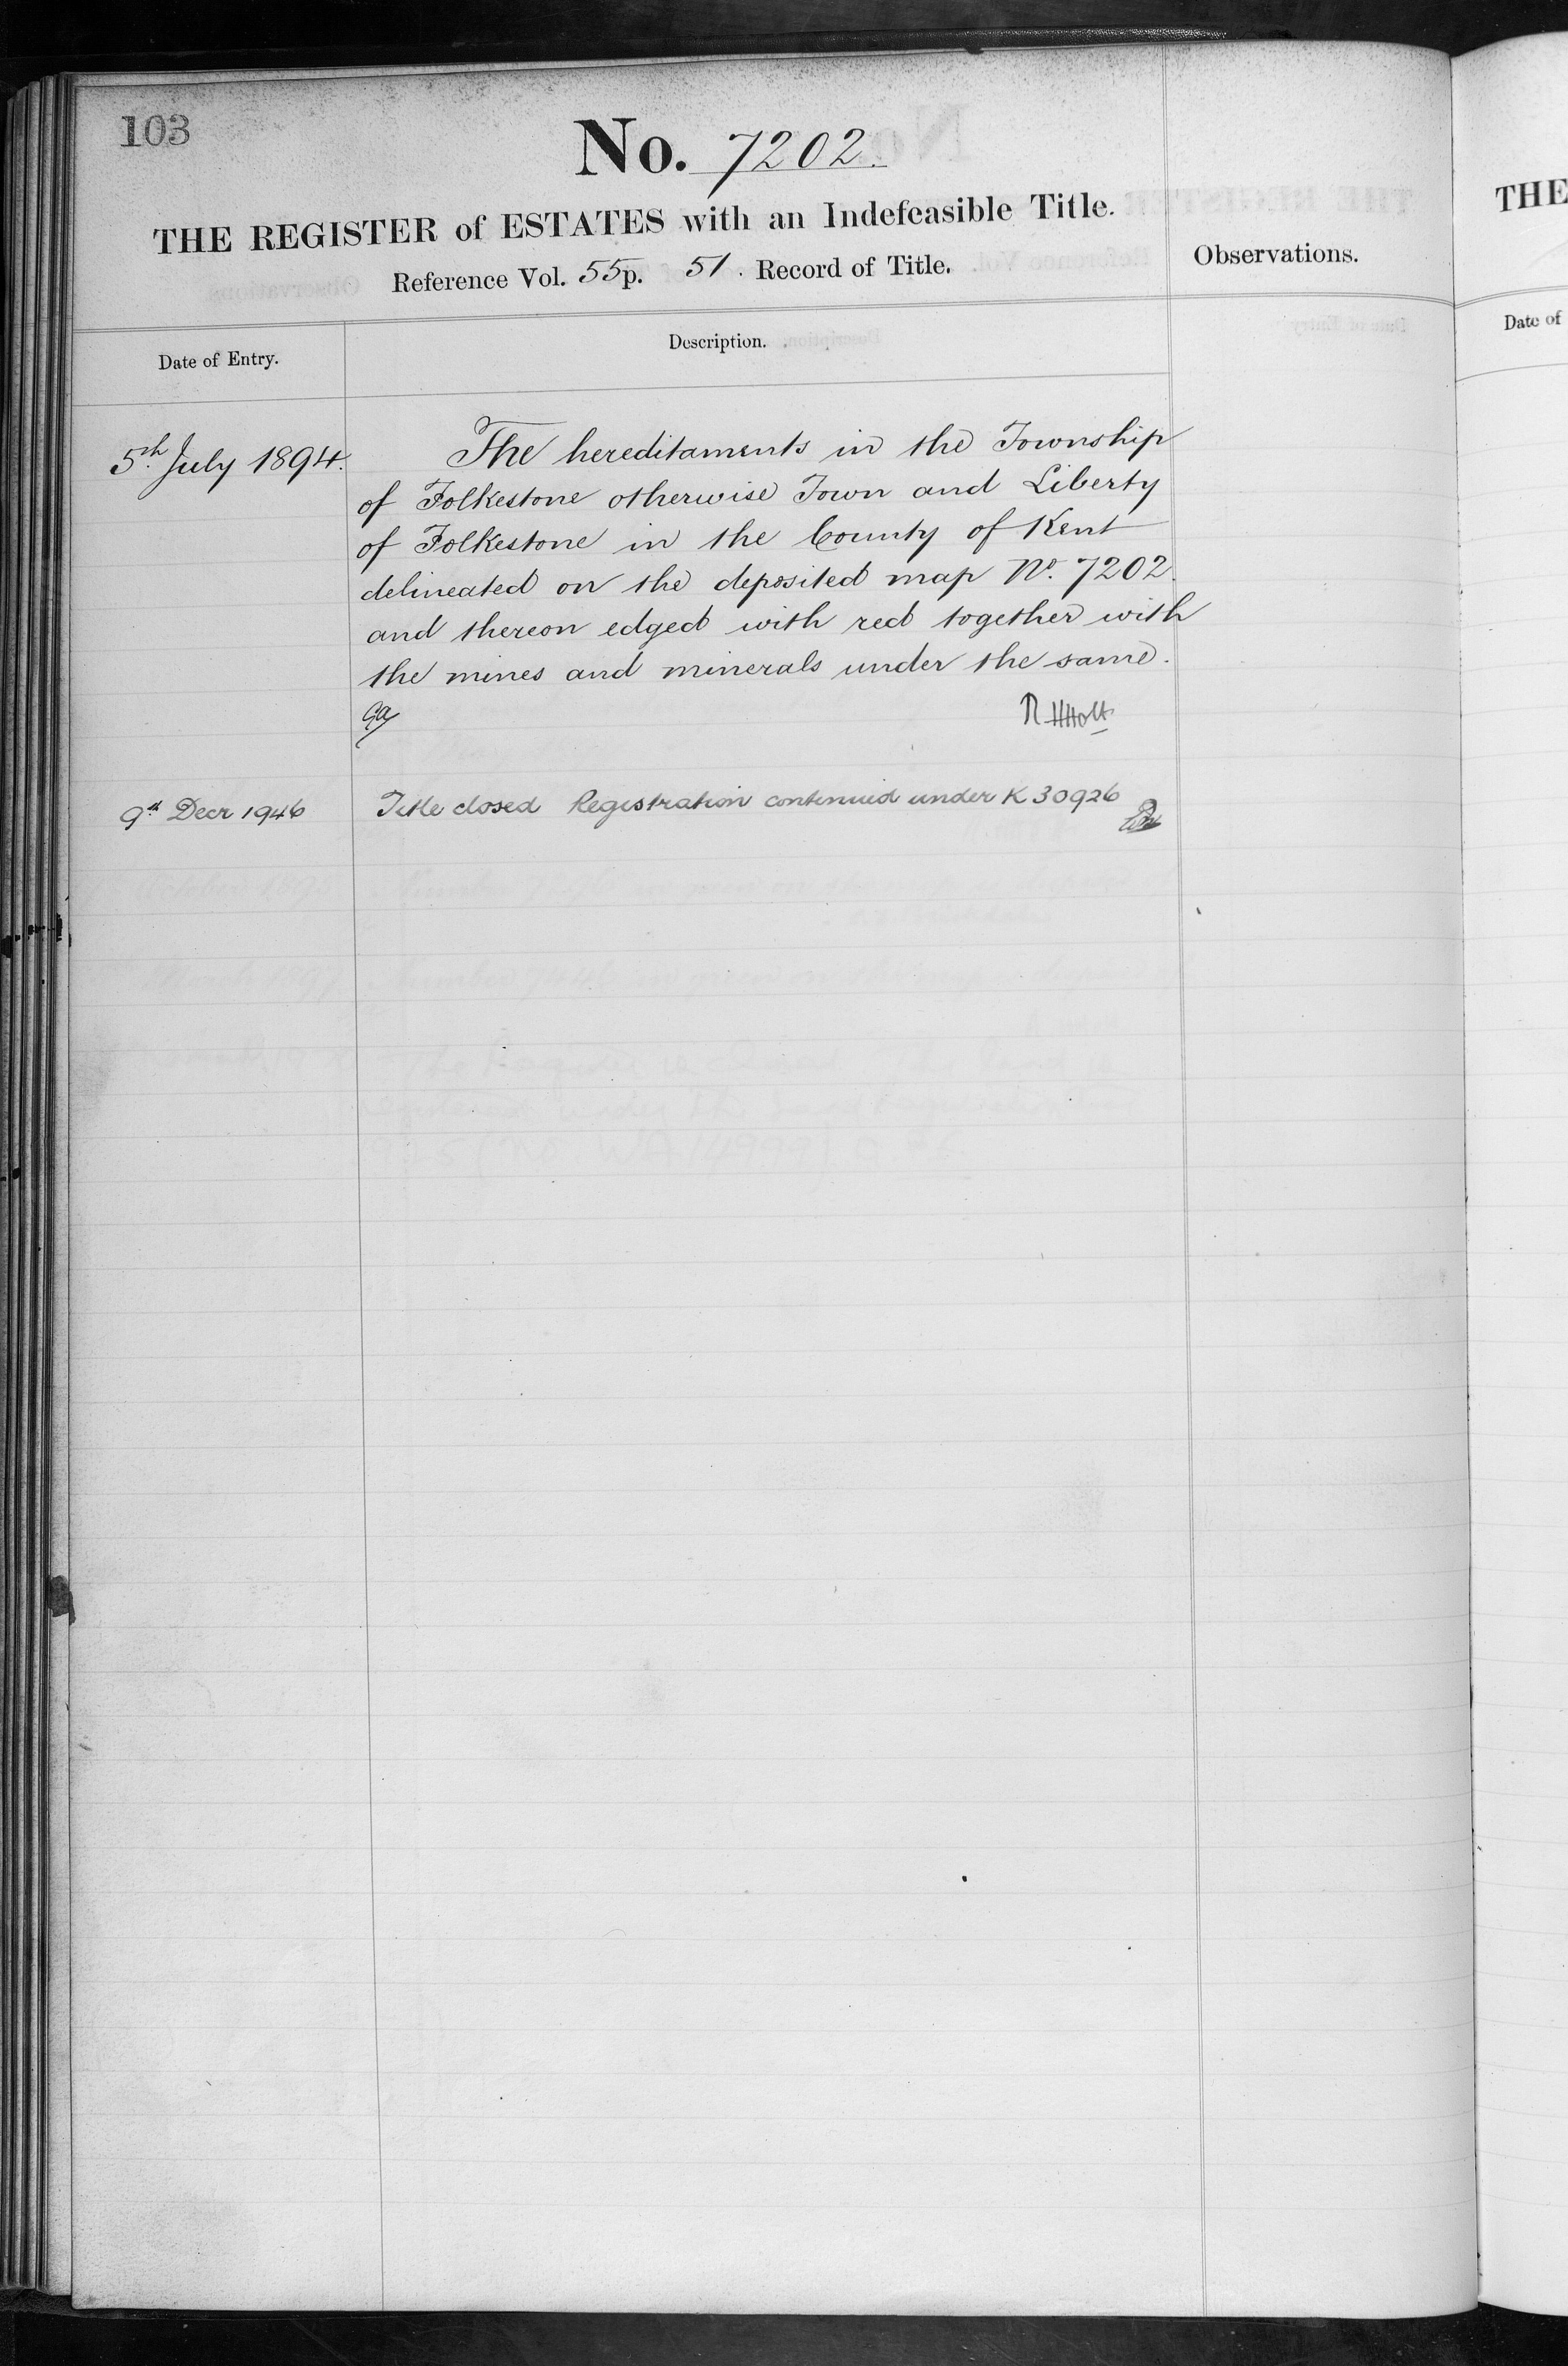 103
No. 7202.
THE REGISTER of ESTATES with an Indefeasible Title.
Reference Vol. 55 p. 51. Record of Title.
Observations.
Date of Entry.
Description.
5th July 1894.
The hereditaments in the Township
of Folkestone otherwise Town and Liberty
of Folkestone in the County of Kent
delineated on the deposited map No. 7202.
and thereon edged with red together with
the mines and minerals under the same.
R HHolt
9th Decr 1946
Title closed Registration continued under K 30926
THE
Date of